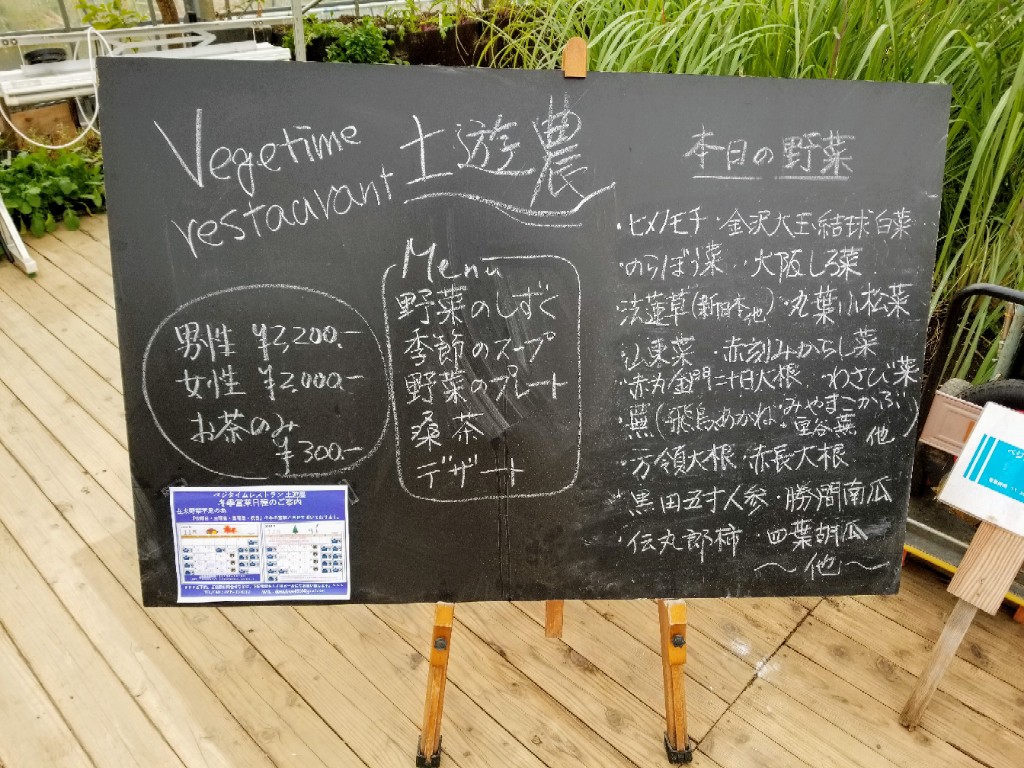 Vegetime
restaurant 土遊農
男性 ¥2,200.-
女性 ¥2,000.-
お茶のみ
¥300.-
Menu
野菜のしずく
季節のスープ
野菜のプレート
桑茶
デザート
本日の野菜
・ヒメノモチ・金沢大玉結球白菜
・のらぼう菜 ・大阪しろ菜
・菠薐草(新日本他)・丸葉小松菜
・山東菜 ・赤刻みからし菜
・赤丸金門二十日大根 ・わさび菜
・蕪(飛鳥あかね・みやまこかぶ
他)
・方領大根・赤長大根
・黒田五寸人参・勝間南瓜
・伝九郎柿 ・四葉胡瓜
〜他〜
ベジタイムレストラン土遊農
冬季営業日程のご案内